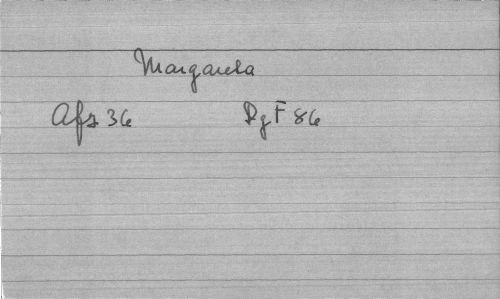 Margareta
Afz 36 Rg F 86